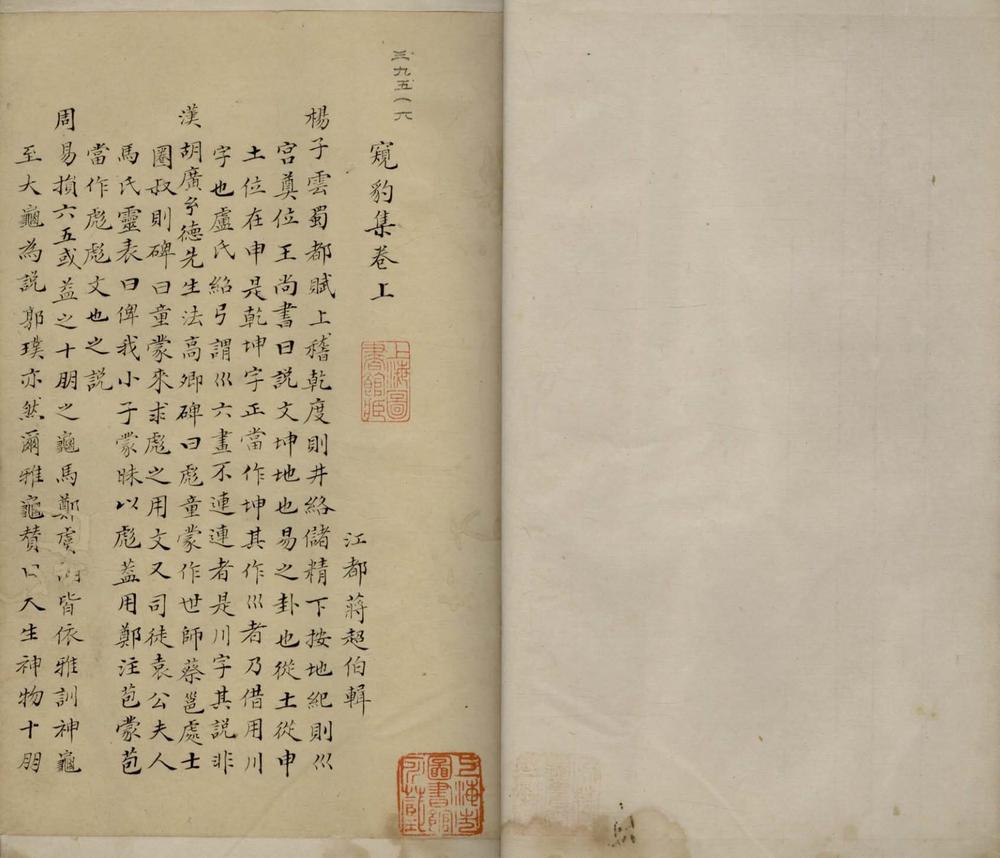 三九五一六
窺豹集卷上
江都蔣超伯輯
楊子雲蜀都賦上稽乾度則井絡儲精下按地紀則巛
宮奠位王尚書曰説文坤地也易之卦也從土從申
土位在申是乾坤字正當作坤其作巛者乃借用川
字也盧氏紹弓謂巛六畫不連連者是川字其説非
漢胡廣㒷德先生法高卿碑曰彪童蒙作世師蔡邕處士
圏叔則碑曰童蒙來求彪之用文又司徒袁公夫人
馬氏靈表曰俾我小子蒙昧以彪蓋用鄭注苞蒙苞
當作彪彪文也之説
周易損六五或益之十朋之龜馬鄭虞皆依雅訓神龜
至大龜為説郭璞亦然爾雅龜贊曰天生神物十朋
上海圖書館臧
上海市圖書館所藏